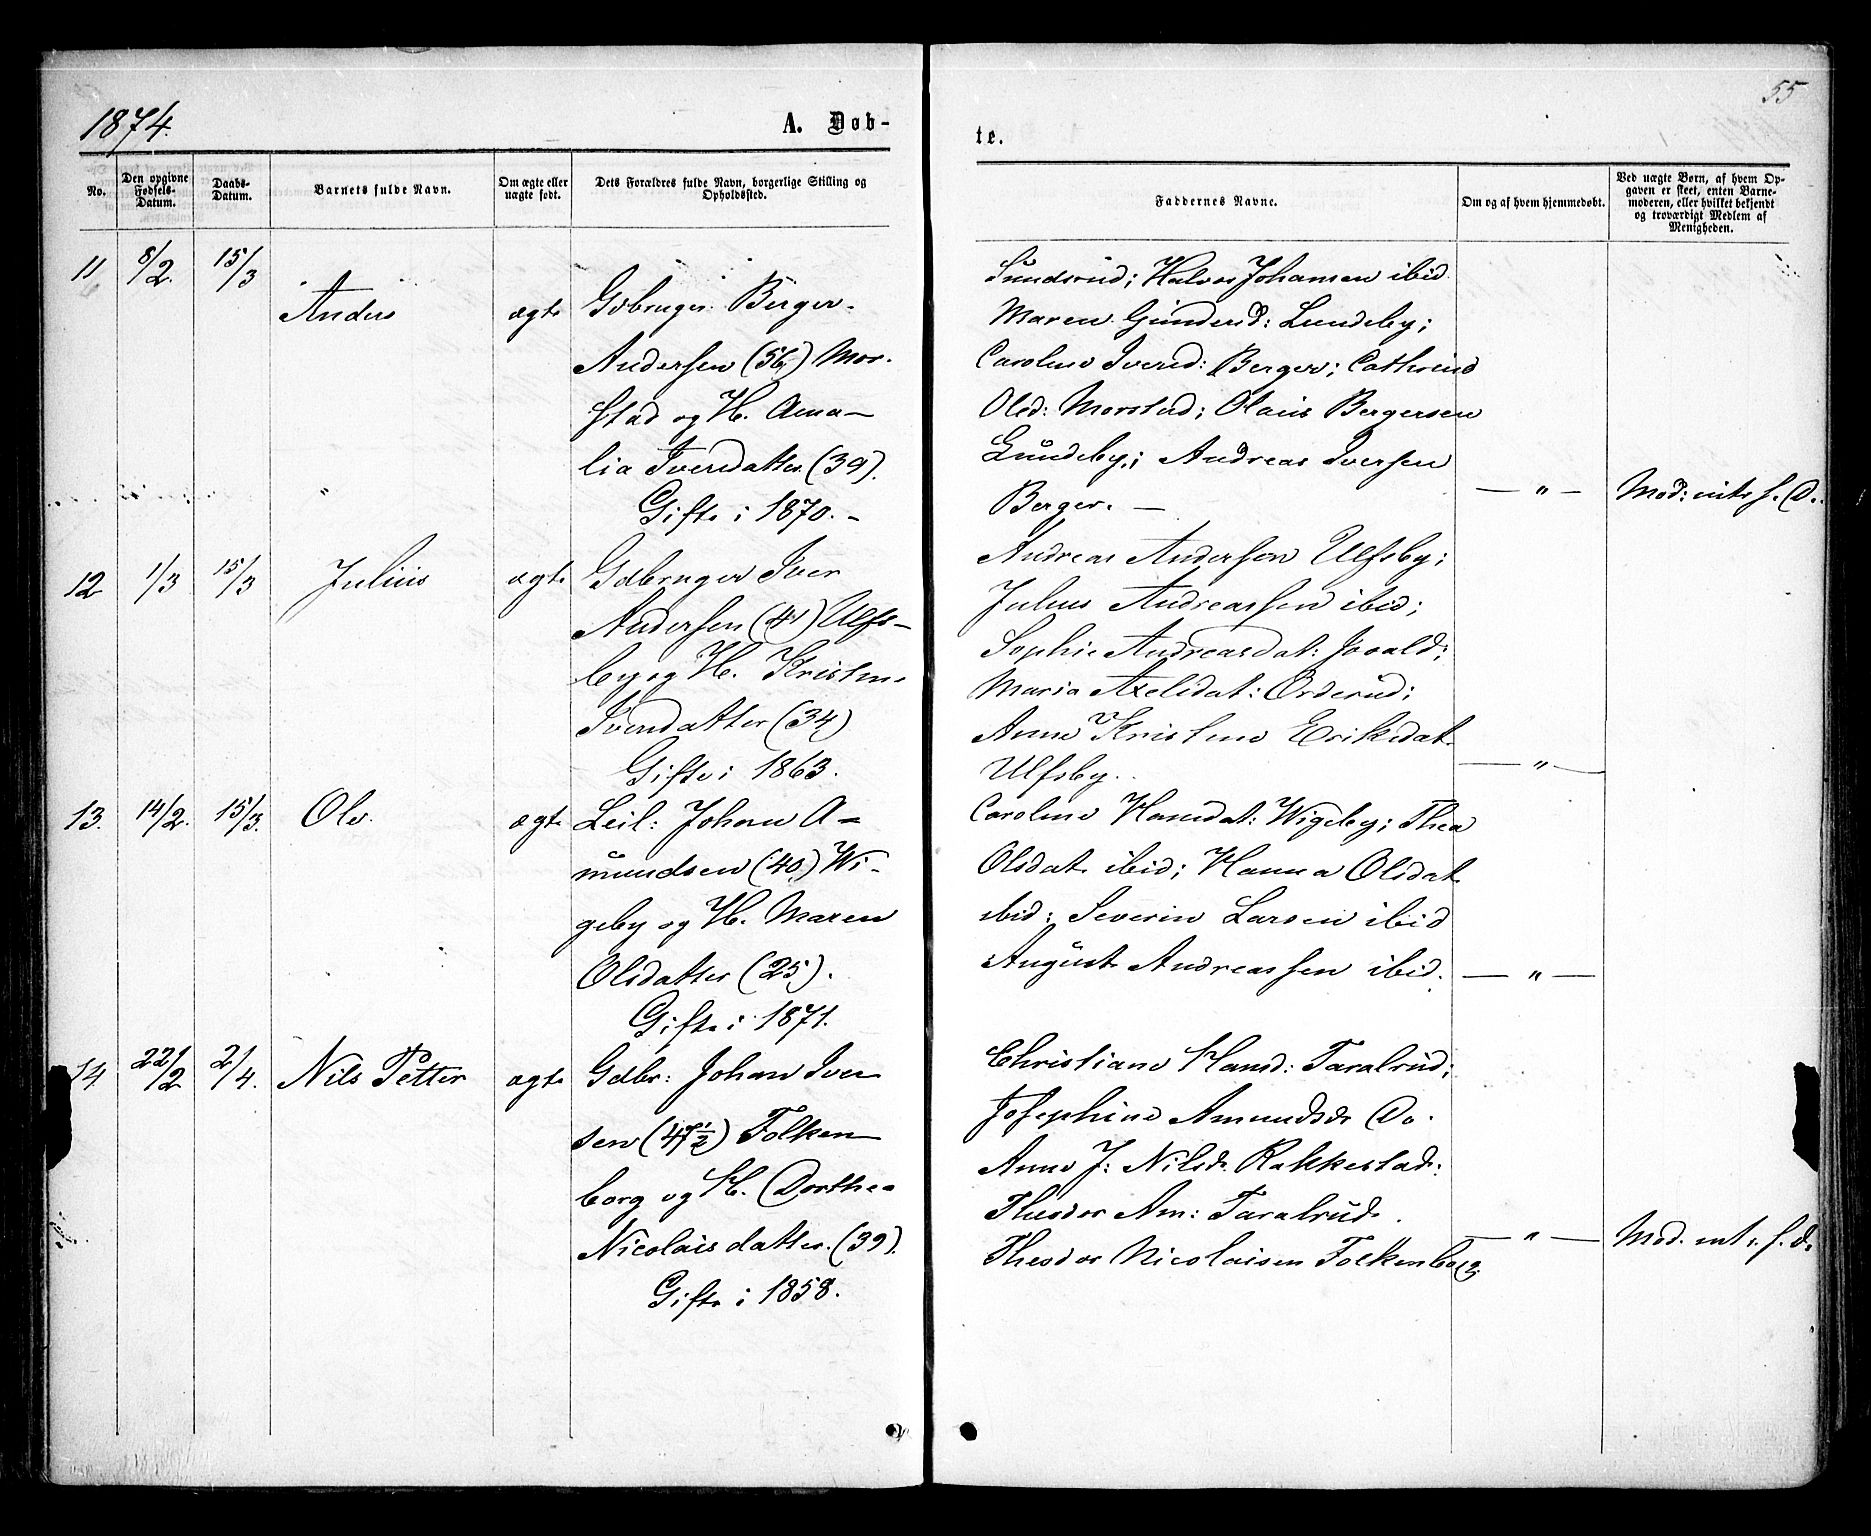 55
1874.
A. Døb-
te.
No.
Den opgivne Fødsels-Datum.
Daabs-Datum.
Barnets fulde Navn.
Om ægte eller uægte født.
Dets Forældres fulde Navn, borgerlige Stilling og Opholdssted.
Faddernes Navne.
Om og af hvem hjemmedøbt.
Ved uægte Børn, af hvem Op-
gaven er skeet, enten Barne-
moderen, eller hvilket bekjendt
og troværdigt Medlem af
Menigheden.
11 8/2. 15/3 Anders ægte Gdbruger Berger
Andersen (56) Mor-
stad og H. Ama-
lia Iversdatter (39).
Gifte i 1870. -
Sundsrud; Halvor Johansen ibid.
Maren Gundersd: Lundeby;
Caroline Iversd: Berger; Cathrine
Olsd: Morstad; Olaus Bergersen
Lundeby; Andreas Iversen
Berger. —
— " — Mod: int. f. D.
12 1/3 15/3 Julius ægte Gdbruger Iver
Andersen (41) Ulfs-
by og H. Kristine
Svendatter (34)
Gifte i 1863.
Andreas Andersen Ulfsby;
Julius Andreassen ibid;
Sophie Andreasdat:
Maria Axelsdat: Orderud;
Anne Kristine Eriksdat.
Ulfsby.
— " —
13. 14/2. 15/3. Ole. ægte Leil: Johan A-
mundsen (40) Wi-
geby og H. Maren
Olsdatter (25).
Gifte i 1871.
Caroline Hansdat: Wigeby; Thea
Olsdat. ibid; Hanna Olsdat.
ibid; Severin Larsen ibid
August Andreassen ibid.
— " —
14 22/2 2/4. Nils Petter ægte Gdbr: Johan Iver-
sen (47½) Folken-
borg og H. Dorthe
Nicolaisdatter (39).
Gifte i 1858.
Christiane Hansd: Taralrud;
Josephine Amundsd. Do.
Anne J: Nilsd. Rakkestad:
Theodor Am: Taralrud.
Theodor Nicolaisen Folkenborg.
— " — Mod. int. f. d.